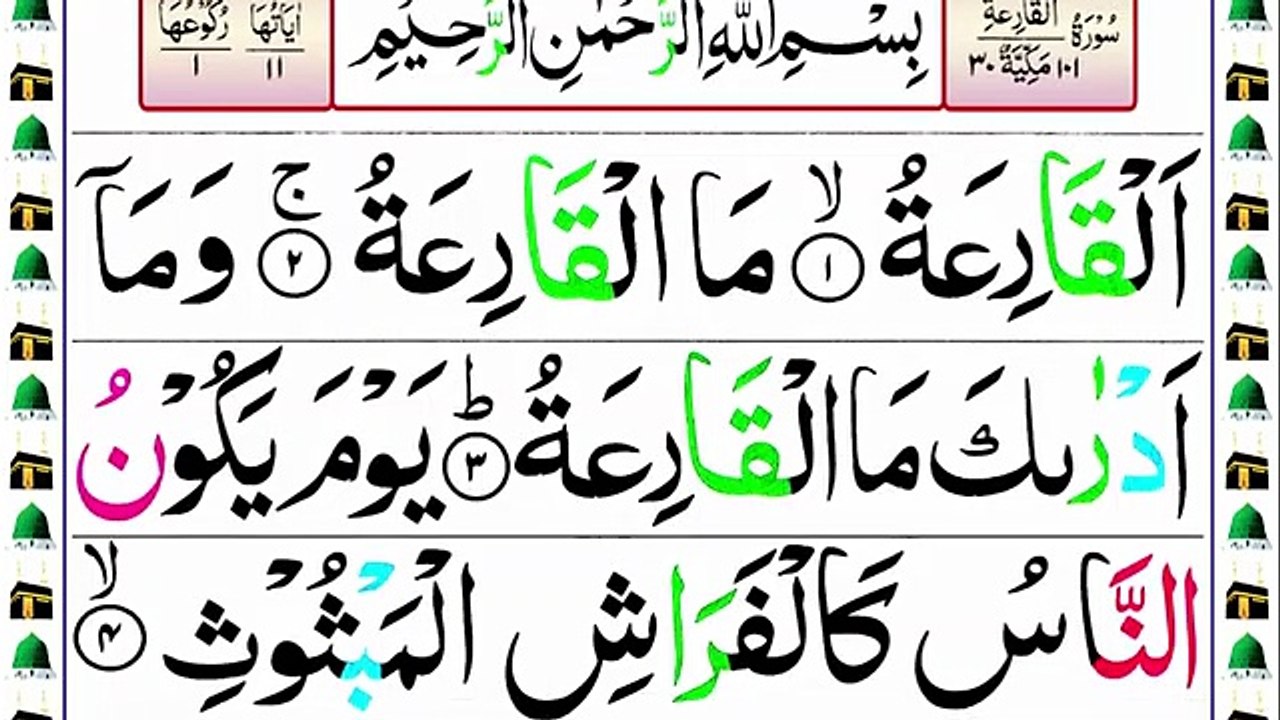 سُوْرَةُ الْقَارِعَةِ
١٠١ مَكِّيَّةٌ ٣٠
بِسْمِ اللّٰهِ الرَّحْمٰنِ الرَّحِيْمِ
اٰيَاتُهَا ١١
رُكُوْعُهَا ١
اَلْقَارِعَةُ ۙ﴿۱﴾ مَا الْقَارِعَةُ ۚ﴿۲﴾ وَمَاۤ
اَدْرٰىكَ مَا الْقَارِعَةُ ؕ﴿۳﴾ يَوْمَ يَكُوْنُ
النَّاسُ كَالْفَرَاشِ الْمَبْثُوْثِ ۙ﴿۴﴾